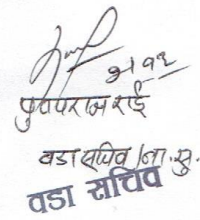 पुष्पराज राई
वडा सचिव /ना.सु.
वडा सचिव